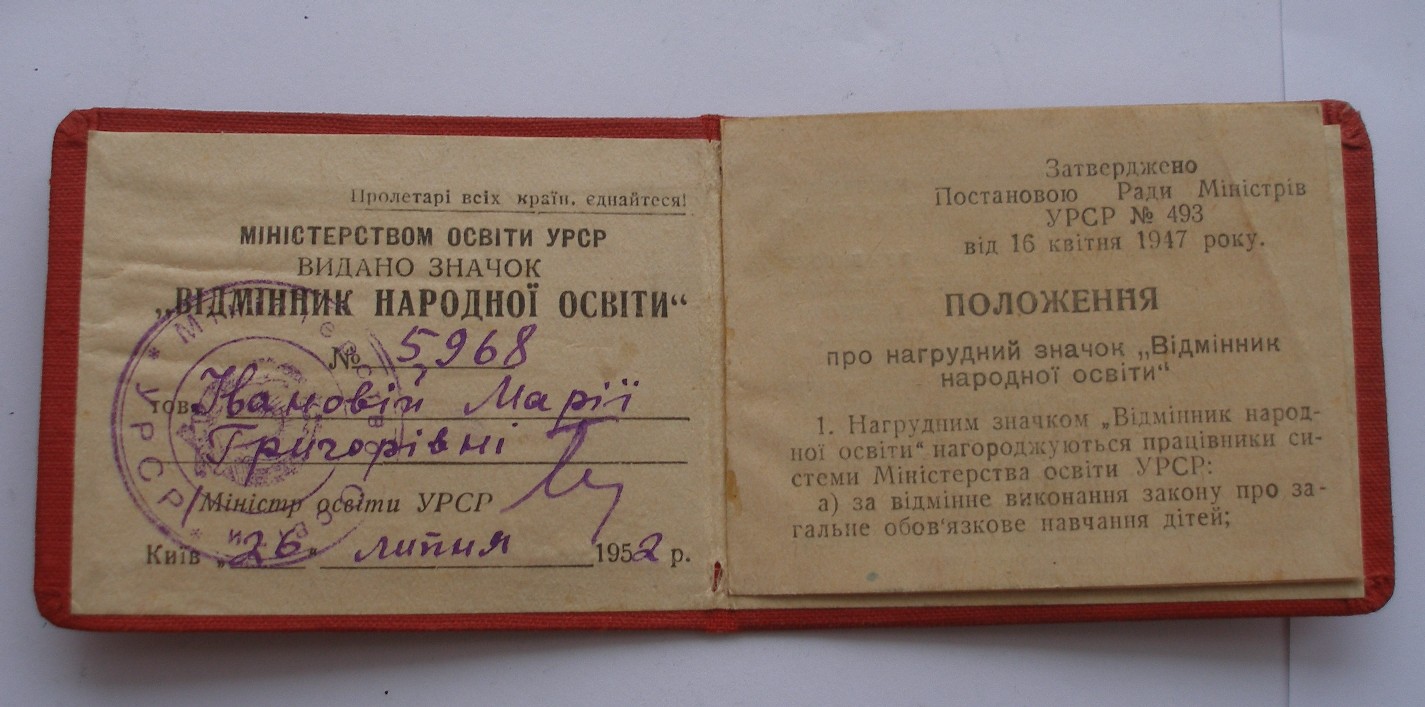 Пролетарі всіх країн, єднайтеся!
МІНІСТЕРСТВОМ ОСВІТИ УРСР
ВИДАНО ЗНАЧОК
„ВІДМІННИК НАРОДНОЇ ОСВІТИ“
№ 5968
тов. Івановій Марії
Григорівні
Міністр освіти УРСР
Київ „26“ липня 1952 р.
УРСР
Затверджено
Постановою Ради Міністрів
УРСР № 493
від 16 квітня 1947 року.
ПОЛОЖЕННЯ
про нагрудний значок „Відмінник
народної освіти“
1. Нагрудним значком „Відмінник народ-
ної освіти“ нагороджуються працівники си-
стеми Міністерства освіти УРСР:
а) за відмінне виконання закону про за-
гальне обов‘язкове навчання дітей;